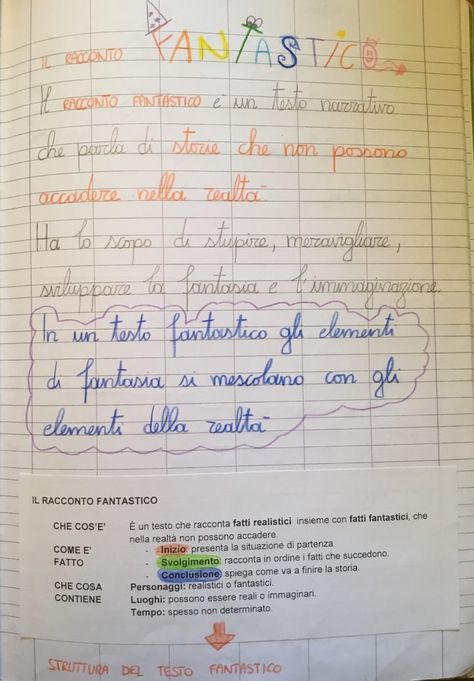 IL RACCONTO FANTASTICO
Il RACCONTO FANTASTICO è un testo narrativo
che parla di storie che non possono
accadere nella realtà
Ha lo scopo di stupire, meravigliare,
sviluppare la fantasia e l'immaginazione.
In un testo fantastico gli elementi
di fantasia si mescolano con gli
elementi della realtà
IL RACCONTO FANTASTICO
CHE COS'E' È un testo che racconta fatti realistici insieme con fatti fantastici, che
nella realtà non possono accadere.
COME E' - Inizio presenta la situazione di partenza.
FATTO - Svolgimento racconta in ordine i fatti che succedono.
- Conclusione spiega come va a finire la storia.
CHE COSA Personaggi: realistici o fantastici.
CONTIENE Luoghi: possono essere reali o immaginari.
Tempo: spesso non determinato.
STRUTTURA DEL TESTO FANTASTICO